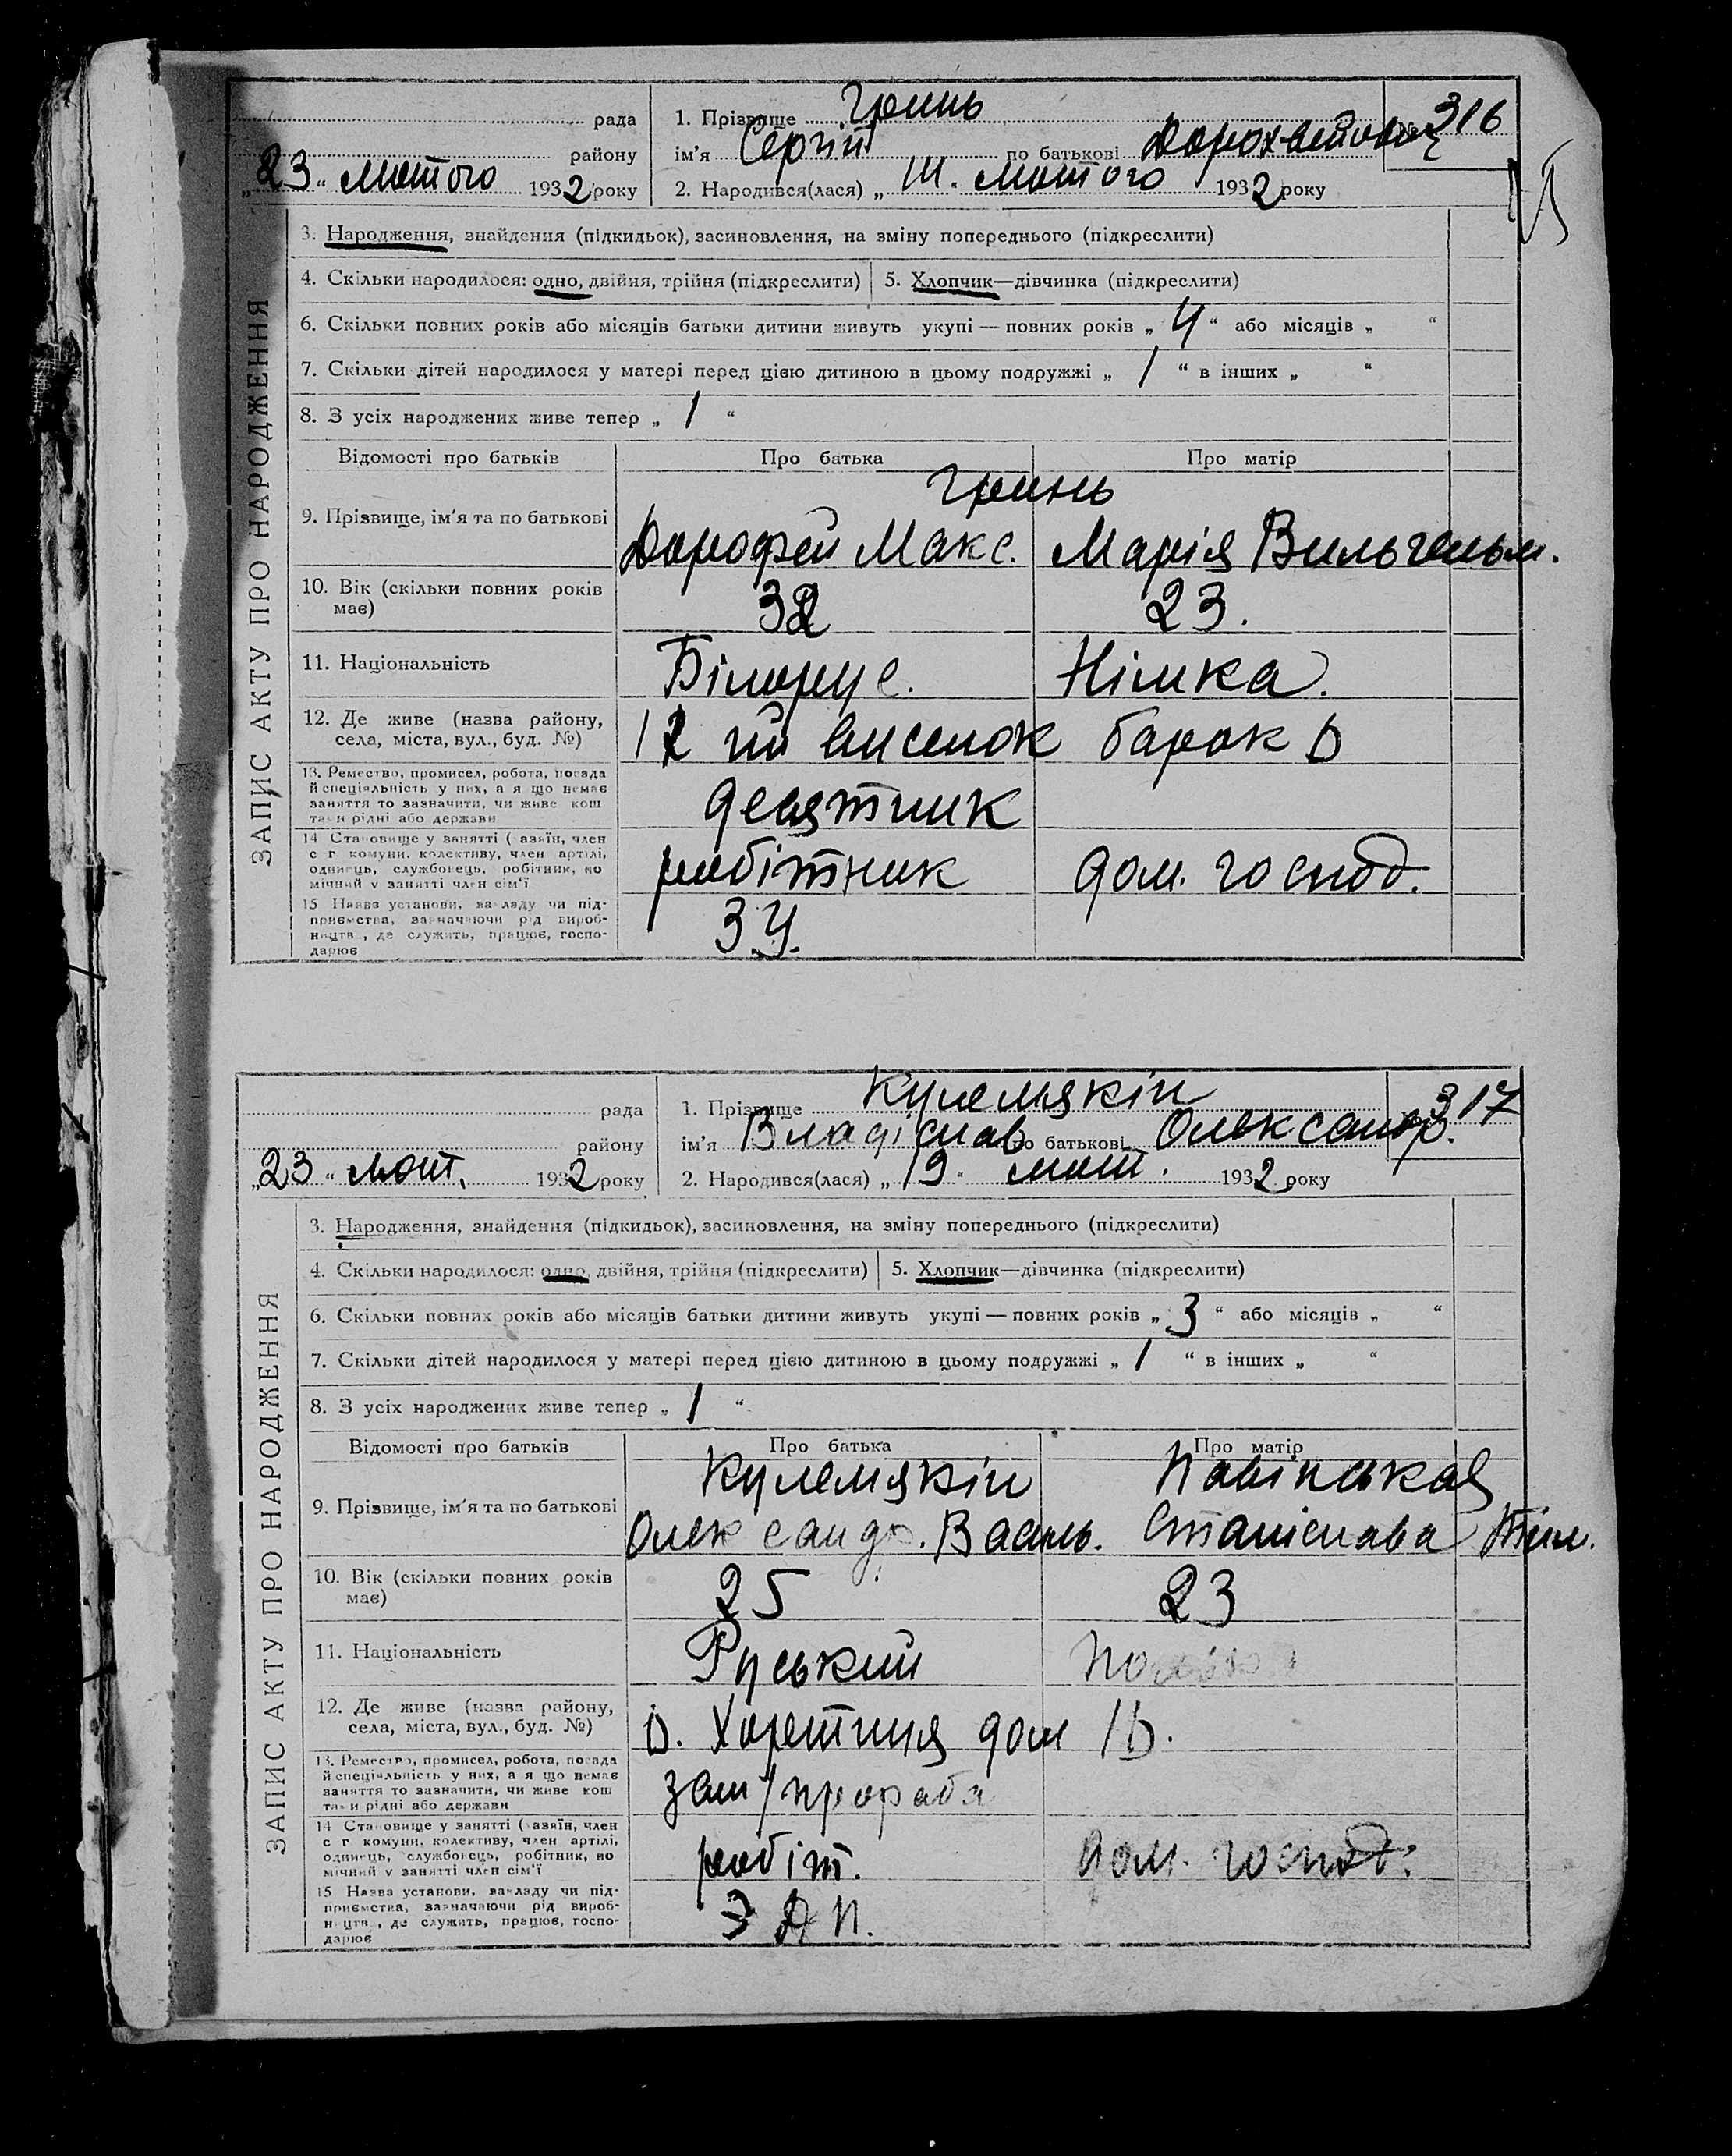 рада
району
„23“ лютого 1932 року
1. Прізвище Гринь
ім'я Сергій по батькові Дорохвейович
№ 316
2. Народився(лася) „ лютого 1932 року
ЗАПИС АКТУ ПРО НАРОДЖЕННЯ
3. Народження, знайдення (підкидьок), засиновлення, на зміну попереднього (підкреслити)
4. Скільки народилося: одно, двійня, трійня (підкреслити) 5. Хлопчик—дівчинка (підкреслити)
6. Скільки повних років або місяців батьки дитини живуть укупі — повних років „ 4 “ або місяців „ “
7. Скільки дітей народилося у матері перед цією дитиною в цьому подружжі „ 1 “ в інших „ “
8. З усіх народжених живе тепер „ 1 “
Відомості про батьків Про батька Про матір
Гринь
9. Прізвище, ім'я та по батькові Дорофей Макс. Марія Вильгельм.
10. Вік (скільки повних років має) 32 23.
11. Національність Білорус. Німка.
12. Де живе (назва району, села, міста, вул., буд. №) 12 ий виселок барак
13. Ремество, промисел, робота, посада й спеціяльність у них, а я що немає заняття то зазначити, чи живе кош та и рідні або держави десятник
14 Становище у занятті ( азяїн, член с г комуни, колективу, член артілі, одинець, службовець, робітник, по мічний у занятті член сім'ї робітник дом. господ.
15 Назва установи, закладу чи підприємства, зазначаючи рід виробництва, де служить, працює, господарює З.У.
рада
району
„23“ лют. 1932 року
1. Прізвище Кулемякін
ім'я Владіслав по батькові Олександр.
317
2. Народився(лася) „19“ лют. 1932 року
ЗАПИС АКТУ ПРО НАРОДЖЕННЯ
3. Народження, знайдення (підкидьок), засиновлення, на зміну попереднього (підкреслити)
4. Скільки народилося: одно, двійня, трійня (підкреслити) 5. Хлопчик—дівчинка (підкреслити)
6. Скільки повних років або місяців батьки дитини живуть укупі — повних років „ 3 “ або місяців „ “
7. Скільки дітей народилося у матері перед цією дитиною в цьому подружжі „ 1 “ в інших „ “
8. З усіх народжених живе тепер „ 1 “
Відомості про батьків Про батька Про матір
Кулемякін
9. Прізвище, ім'я та по батькові Олександр. Василь. Станіслава
10. Вік (скільки повних років має) 25 23
11. Національність Руський
12. Де живе (назва району, села, міста, вул., буд. №) Хортиця дом
13. Ремество, промисел, робота, посада й спеціяльність у них, а я що немає заняття то зазначити, чи живе кош та и рідні або держави зам/прораба
14 Становище у занятті ( азяїн, член с г комуни, колективу, член артілі, одинець, службовець, робітник, по мічний у занятті член сім'ї робіт. дом. господ.
15 Назва установи, закладу чи підприємства, зазначаючи рід виробництва, де служить, працює, господарює